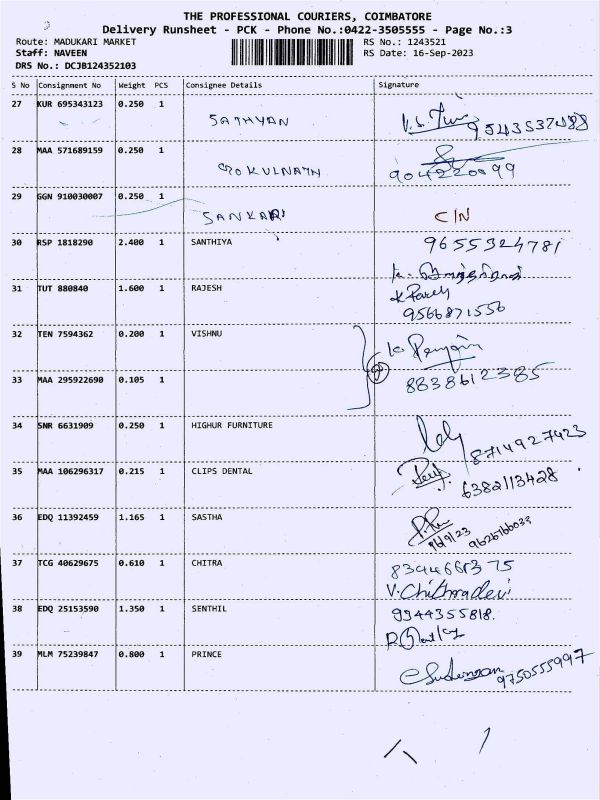 3
THE PROFESSIONAL COURIERS, COIMBATORE
Delivery Runsheet - PCK - Phone No.:0422-3505555 - Page No.:3
Route: MADUKARI MARKET
RS No.: 1243521
Staff: NAVEEN
RS Date: 16-Sep-2023
DRS No.: DCJB124352103
S No Consignment No Weight PCS Consignee Details Signature
27 KUR 695343123 0.250 1 SATHYAN
28 MAA 571689159 0.250 1 GOKULNATH
29 GGN 910030007 0.250 1 SANKARI C/N
30 RSP 1818290 2.400 1 SANTHIYA 9655324781
31 TUT 880840 1.600 1 RAJESH
9566871556
32 TEN 7594362 0.200 1 VISHNU
33 MAA 295922690 0.105 1 8838612385
34 SNR 6631909 0.250 1 HIGHUR FURNITURE 8714927423
35 MAA 106296317 0.215 1 CLIPS DENTAL 6382113428
36 EDQ 11392459 1.165 1 SASTHA
16/9/23 9626766033
37 TCG 40629675 0.610 1 CHITRA
V. Chithradevi
38 EDQ 25153590 1.350 1 SENTHIL 9944355818.
39 MLM 75239847 0.800 1 PRINCE 9750555997